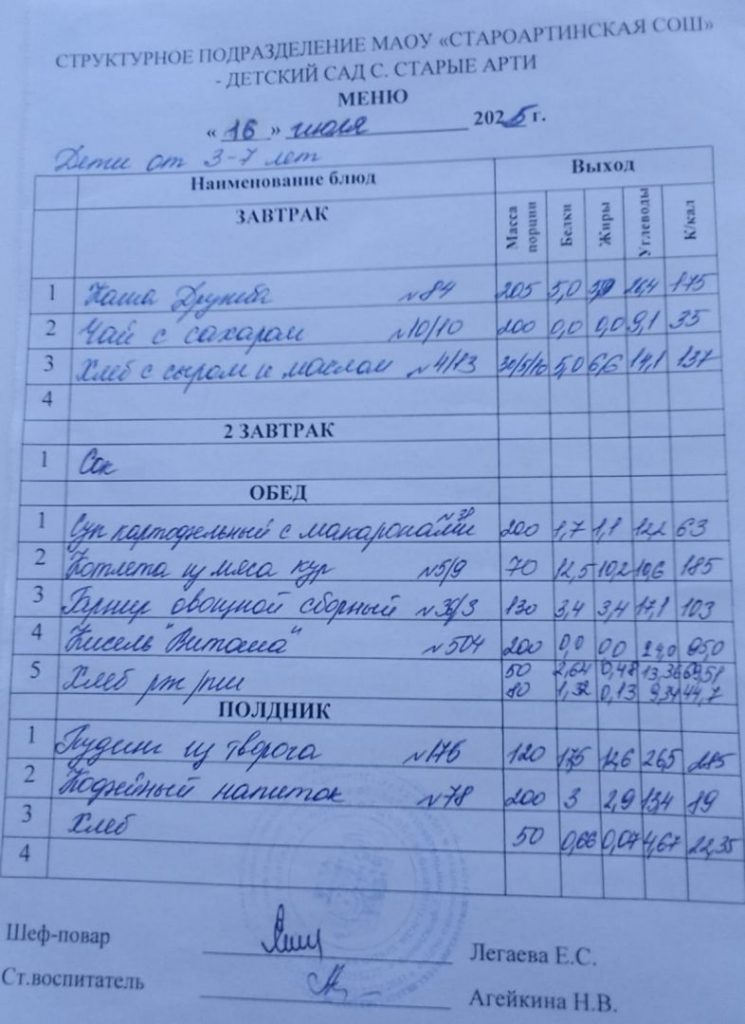 СТРУКТУРНОЕ ПОДРАЗДЕЛЕНИЕ МАОУ «СТАРОАРТИНСКАЯ СОШ»
- ДЕТСКИЙ САД С. СТАРЫЕ АРТИ
МЕНЮ
« 16 » июля 2025 г.
Дети от 3-7 лет
Наименование блюд Выход
ЗАВТРАК Масса порции Белки Жиры Углеводы К/кал
1 Каша Дружба №84 205 5,0 26,4 175
2 Чай с сахаром №10/10 200 0,0 0,0 9,1 35
3 Хлеб с сыром и маслом №4/13 30/5/10 5,0 6,6 14,1 137
4
2 ЗАВТРАК
1 Сок
ОБЕД
1 Суп картофельный с макаронами №38 200 1,7 1,1 12,2 63
2 Котлета из мяса кур №5/9 70 12,5 10,2 10,6 185
3 Гарнир овощной сборный 130 3,4 3,4 17,1 103
4 Кисель "Витоша" №504 200 0,0 0,0 95,0
5 Хлеб рж/пш 50 2,64 0,48 13,36 69,51
1,32 0,13 9,34 44,7
ПОЛДНИК
1 Пудинг из творога №176 120 17,5 12,6 26,5 285
2 Кофейный напиток №78 200 3 2,9 13,4 89
3 Хлеб 50 0,66 0,07 4,67 22,35
4
Шеф-повар Легаева Е.С.
Ст.воспитатель Агейкина Н.В.